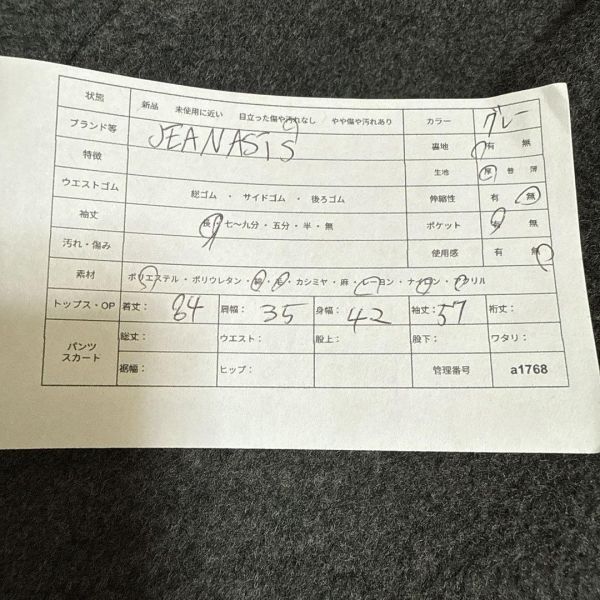 状態 新品 未使用に近い 目立った傷や汚れなし やや傷や汚れあり カラー グレー
ブランド等 JEANASiS 裏地 有 無
特徴 生地 厚 普 薄
ウエストゴム 総ゴム ・ サイドゴム ・ 後ろゴム 伸縮性 有 無
袖丈 長・七〜九分・五分・半・無 ポケット 有 無
汚れ・傷み 使用感 有 無
素材 ポリエステル・ポリウレタン・綿・毛・カシミヤ・麻・レーヨン・ナイロン・アクリル
トップス・OP 着丈: 84 肩幅: 35 身幅: 42 袖丈: 57 裄丈:
パンツ スカート 総丈: ウエスト: 股上: 股下: ワタリ:
裾幅: ヒップ: 管理番号 a1768